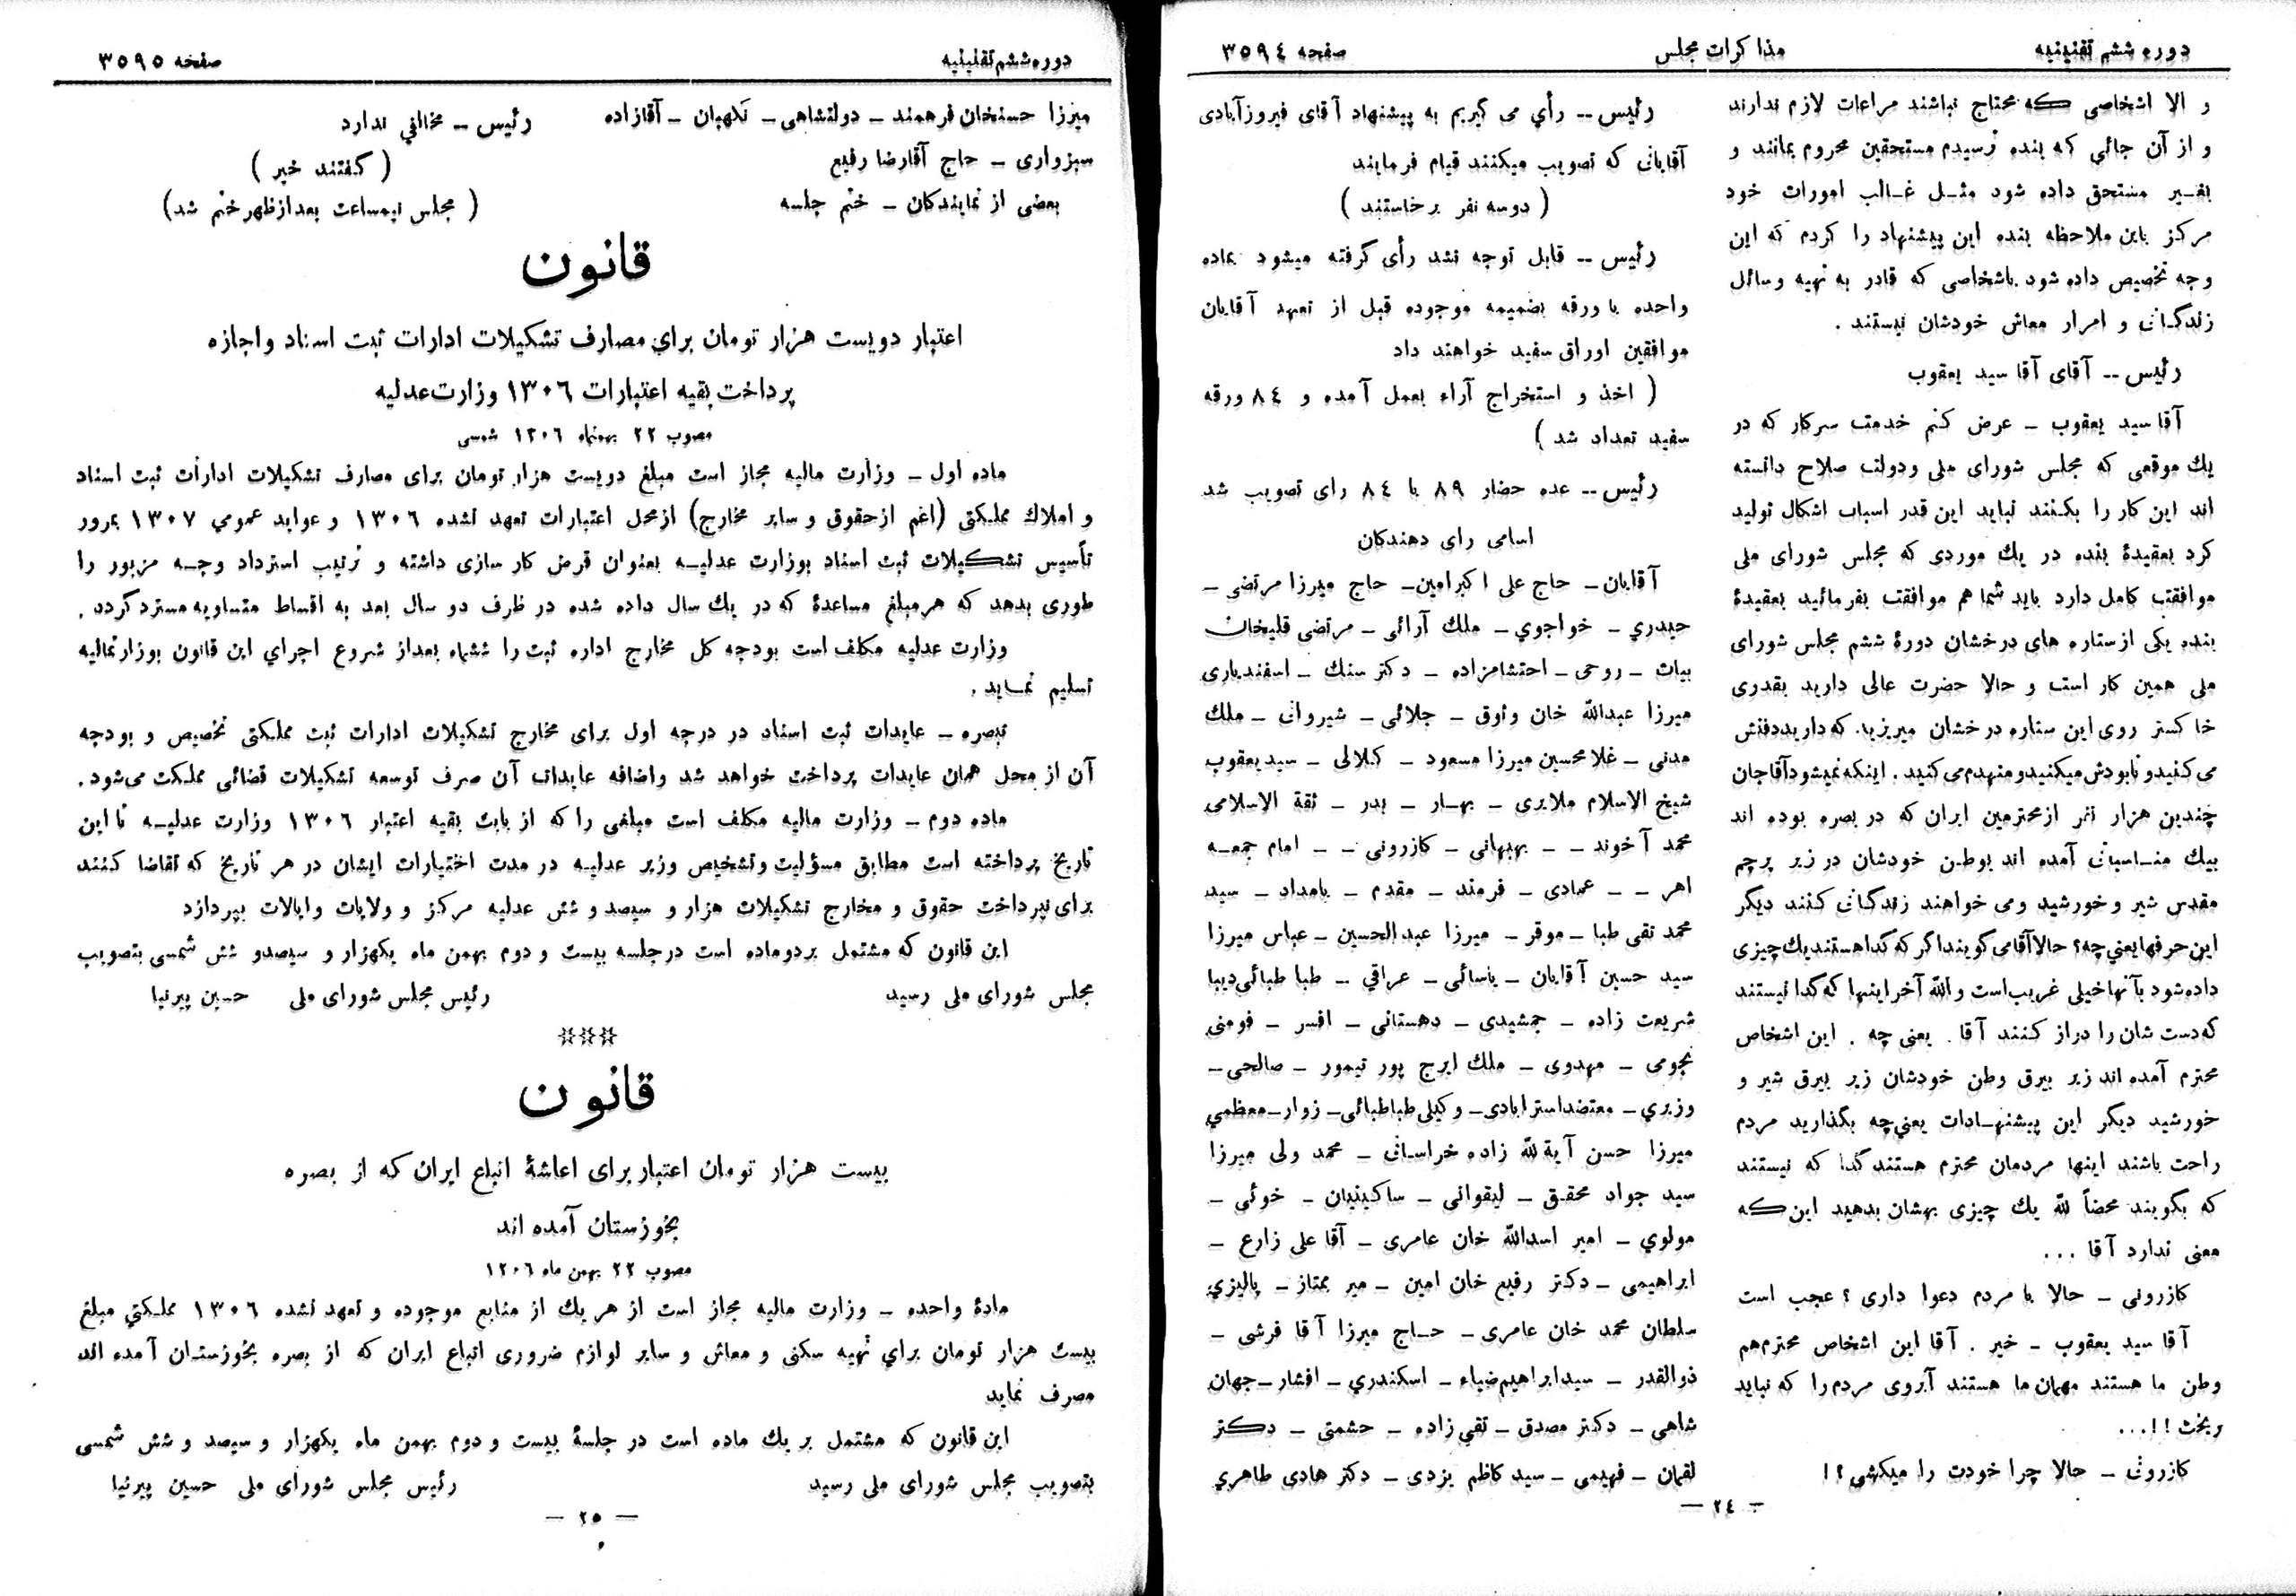 دوره ششم تقنینیه
مذاکرات مجلس
صفحه ۳۵۹٤
و الا اشخاصی که محتاج نباشند مراعات لازم ندارند
و از آن جائی که بنده ترسیدم مستحقین محروم بمانند و
بغیر مستحق داده شود مثل غالب امورات خود
مرکز باین ملاحظه بنده این پیشنهاد را کردم که این
وجه تخصیص داده شود باشخاصی که قادر به تهیه وسائل
زندگانی و امرار معاش خودشان نیستند .
رئیس -- آقای آقا سید یعقوب
آقا سید یعقوب - عرض کنم خدمت سرکار که در
یك موقعی که مجلس شورای ملی ودولت صلاح دانسته
اند این کار را بکنند نباید این قدر اسباب اشکال تولید
کرد بعقیدۀ بنده در یك موردی که مجلس شورای ملی
موافقت کامل دارد باید شما هم موافقت بفرمائید بعقیدۀ
بنده یکی از ستاره های درخشان دورۀ ششم مجلس شورای
ملی همین کار است و حالا حضرت عالی دارید بقدری
خاکستر روی این ستاره درخشان میریزید. که دارید دفنش
می کنید و نابودش میکنید و منهدم می کنید . اینکه نمیشود آقاجان
چندین هزار نفر از محترمین ایران که در بصره بوده اند
بیك مناسباتی آمده اند بوطن خودشان در زیر پرچم
مقدس شیر و خورشید ومی خواهند زندگانی کنند دیگر
این حرفها یعنی چه؟ حالا آقا می گویند اگر که گدا هستند یك چیزی
داده شود بآنها خیلی غریب است والله آخر اینها که گدا نیستند
که دست شان را دراز کنند آقا . یعنی چه . این اشخاص
محترم آمده اند زیر بیرق وطن خودشان زیر بیرق شیر و
خورشید دیگر این پیشنهادات یعنی چه بگذارید مردم
راحت باشند اینها مردمان محترم هستند گدا که نیستند
که بگویند محضاً لله یك چیزی بهشان بدهید این که
معنی ندارد آقا ...
کازرونی - حالا با مردم دعوا داری ؟ عجب است
آقا سید یعقوب - خیر . آقا این اشخاص محترم هم
وطن ما هستند مهمان ما هستند آبروی مردم را که نباید
ریخت ! ! ...
کازرونی - حالا چرا خودت را میکشی ؟ !
رئیس -- رأی می گیریم به پیشنهاد آقای فیروزآبادی
آقایانی که تصویب میکنند قیام فرمایند
( دو سه نفر برخاستند )
رئیس -- قابل توجه نشد رأی گرفته میشود بماده
واحده با ورقه بضمیمه موجوده قبل از تعهد آقایان
موافقین اوراق سفید خواهند داد
( اخذ و استخراج آراء بعمل آمده و ۸٤ ورقه
سفید تعداد شد )
رئیس -- عده حضار ۸۹ با ۸٤ رای تصویب شد
اسامی رای دهندگان
آقایان - حاج علی اکبر امین - حاج میرزا مرتضی -
حیدري - خواجوي - ملك آرائی - مرتضی قلیخان
بیات - روحی - احتشامزاده - دکتر سنك - اسفندیاری
میرزا عبدالله خان وثوق - جلائی - شیروانی - ملك
مدنی - غلامحسین میرزا مسعود - کلالی - سید یعقوب
شیخ الاسلام ملایری - بهار - بدر - ثقة الاسلامی
محمد آخوند - - بهبهانی - کازرونی - - امام جمعه
اهر - - عمادی - فرمند - مقدم - بامداد - سید
محمد تقی طبا - موقر - میرزا عبدالحسین - عباس میرزا
سید حسین آقایان - یاسائی - عراقي - طباطبائی دیبا
شریعت زاده - جمشیدی - دهستانی - افسر - فومنی
نجومی - مهدوی - ملك ایرج پور تیمور - صالحی -
وزیري - معتضد استرابادی - وکیلی طباطبائی - زوار - معظمي
میرزا حسن آیةالله زاده خراسانی - محمد ولی میرزا
سید جواد محقق - لیقوانی - ساکینیان - خوئی -
مولوي - امیر اسدالله خان عامری - آقا علی زارع -
ابراهیمی - دکتر رفیع خان امین - میر ممتاز - پالیزي
سلطان محمد خان عامری - حاج میرزا آقا فرشی -
ذوالقدر - سید ابراهیم ضیاء - اسکندري - افشار - جهان
شاهی - دکتر مصدق - تقی زاده - حشمتی - دکتر
لقمان - فهیمی - سید کاظم یزدی - دکتر هادی طاهري
— ۲٤ —
دوره ششم تقلینیه
صفحه ۳۵۹۵
میرزا حسنخان فرهمند - دولتشاهی - نگهبان - آقازاده
سبزواری - حاج آقارضا رفیع
بعضی از نمایندگان - ختم جلسه
رئیس - مخالفي ندارد
( گفتند خیر )
( مجلس نیمساعت بعدازظهر ختم شد)
قانون
اعتبار دویست هزار تومان براي مصارف تشکیلات ادارات ثبت اسناد واجازه
پرداخت بقیه اعتبارات ۱۳۰٦ وزارت عدلیه
مصوب ۲۲ بهمنماه ۱۳۰٦ شمسی
ماده اول - وزارت مالیه مجاز است مبلغ دویست هزار تومان برای مصارف تشکیلات ادارات ثبت اسناد
و املاك مملکتی (اعم ازحقوق و سایر مخارج) ازمحل اعتبارات تعهد نشده ۱۳۰٦ و عواید عمومي ۱۳۰۷ بمرور
تأسیس تشکیلات ثبت اسناد بوزارت عدلیه بعنوان قرض کار سازی داشته و ترتیب استرداد وجه مزبور را
طوری بدهد که هر مبلغ مساعدۀ که در یك سال داده شده در ظرف دو سال بعد به اقساط متساویه مسترد گردد .
وزارت عدلیه مکلف است بودجه کل مخارج اداره ثبت را ششماه بعداز شروع اجراي این قانون بوزارتمالیه
تسلیم نماید .
تبصره - عایدات ثبت اسناد در درجه اول برای مخارج تشکیلات ادارات ثبت مملکتی تخصیص و بودجه
آن از محل همان عایدات پرداخت خواهد شد واضافه عایدات آن صرف توسعه تشکیلات قضائی مملکت می شود .
ماده دوم - وزارت مالیه مکلف است مبلغی را که از بابت بقیه اعتبار ۱۳۰٦ وزارت عدلیه تا این
تاریخ پرداخته است مطابق مسؤلیت وتشخیص وزیر عدلیه در مدت اختیارات ایشان در هر تاریخ که تقاضا کنند
برای پرداخت حقوق و مخارج تشکیلات هزار و سیصد و شش عدلیه مرکز و ولایات وایالات بپردازد
این قانون که مشتمل بردوماده است درجلسه بیست و دوم بهمن ماه یکهزار و سیصدو شش شمسی بتصویب
مجلس شورای ملی رسید
رئیس مجلس شورای ملی حسین پیرنیا
***
قانون
بیست هزار تومان اعتبار برای اعاشۀ اتباع ایران که از بصره
بخوزستان آمده اند
مصوب ۲۲ بهمن ماه ۱۳۰٦
مادۀ واحده - وزارت مالیه مجاز است از هر یك از منابع موجوده و تعهد نشده ۱۳۰٦ مملکتي مبلغ
بیست هزار تومان براي تهیه سکنی و معاش و سایر لوازم ضروری اتباع ایران که از بصره بخوزستان آمده اند
مصرف نماید
این قانون که مشتمل بر یك ماده است در جلسۀ بیست و دوم بهمن ماه یکهزار و سیصد و شش شمسی
بتصویب مجلس شورای ملی رسید
رئیس مجلس شورای ملی حسین پیرنیا
— ۲۵ —